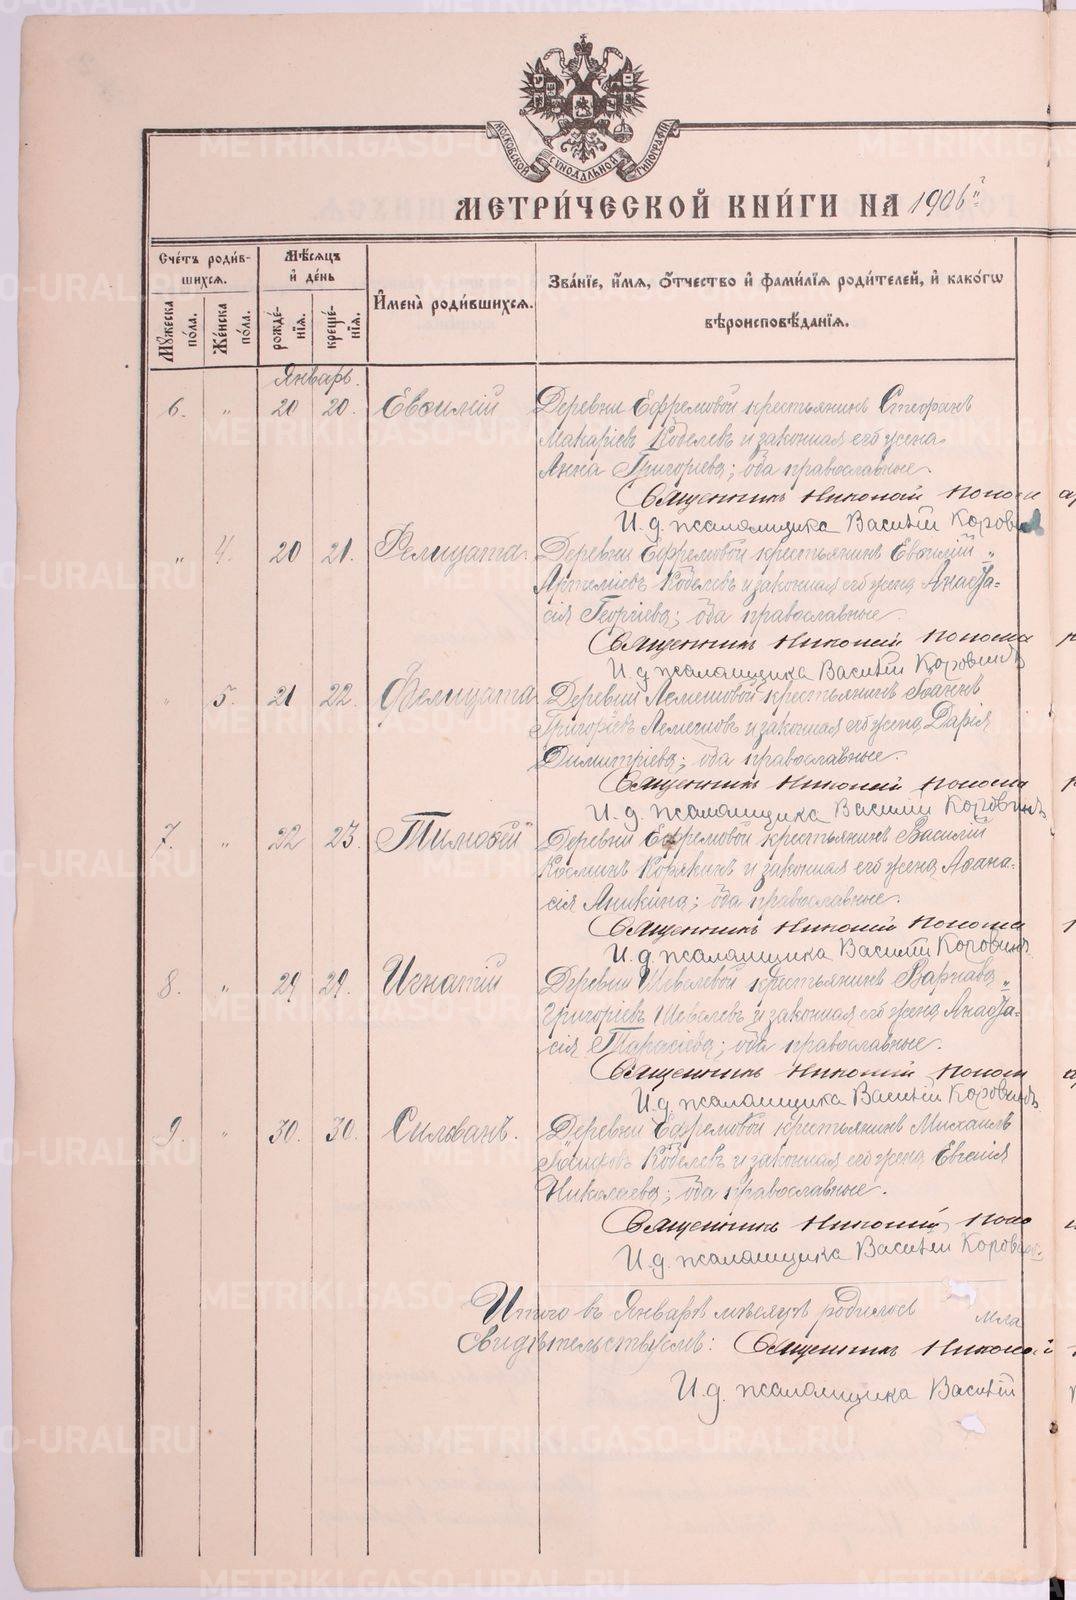 МОСКОВСКОЙ СѴНОДАЛЬНОЙ ТИПОГРАФІИ
МЕТРИ́ЧЕСКОЙ КНИ́ГИ НА 1906й
Сче́тъ роди́в-
шихся.
Мѣ́сяцъ
и҆ де́нь
И҆мена̀ роди́вшихся.
Зва́нїе, и҆́мя, ѻ҆́тчество и҆ фами́лїя роди́телей, и҆ како́гѡ
вѣроисповѣ́данїя.
Мꙋ́жеска по́ла.
Же́нска по́ла.
рожде́-нїя.
креще́-нїя.
Январь.
6. „ 20 20. Евѳимій Деревни Ефремовой крестьянинъ Стефанъ
Макаріевъ Кобелевъ и законная его жена
Анна Григоріева; оба православные.
Священникъ Николай
И. д. псаломщика Василій Коровин
„ 4. 20 21. Фелицата. Деревни Ефремовой крестьянинъ Евѳимій
Артеміевъ Кобелевъ и законная его жена Анаста-
сія Георгіева; оба православные.
Священникъ Николай
И. д. псаломщика Василій Коровинъ
„ 5. 21 22. Фелицата Деревни Лемешовой крестьянинъ Іоаннъ
Григоріевъ Лемешовъ и законная его жена Дарія
Димитріева; оба православные.
Священникъ Николай
И. д. псаломщика Василій Коровинъ
7. „ 22 23. Тимоѳей Деревни Ефремовой крестьянинъ Василій
Косминъ Корякинъ и законная его жена Аѳана-
сія Аникина; оба православные.
Священникъ Николай
И. д. псаломщика Василій Коровинъ
8. „ 29 29. Игнатій Деревни Шевелевой крестьянинъ Варнава
Григоріевъ Шевелевъ и законная его жена Анаста-
сія Тарасіева; оба православные.
Священникъ Николай
И. д. псаломщика Василій Коровинъ
9. „ 30. 30. Сильванъ. Деревни Ефремовой крестьянинъ Михаилъ
Кобелевъ и законная его жена Евгенія
Николаева; оба православные.
Священникъ Николай
И. д. псаломщика Василій
Итого въ Январѣ мѣсяцѣ родилось
Свидѣтельствуемъ: Священникъ Николай
И. д. псаломщика Василій
METRIKI.GASO-URAL.RU